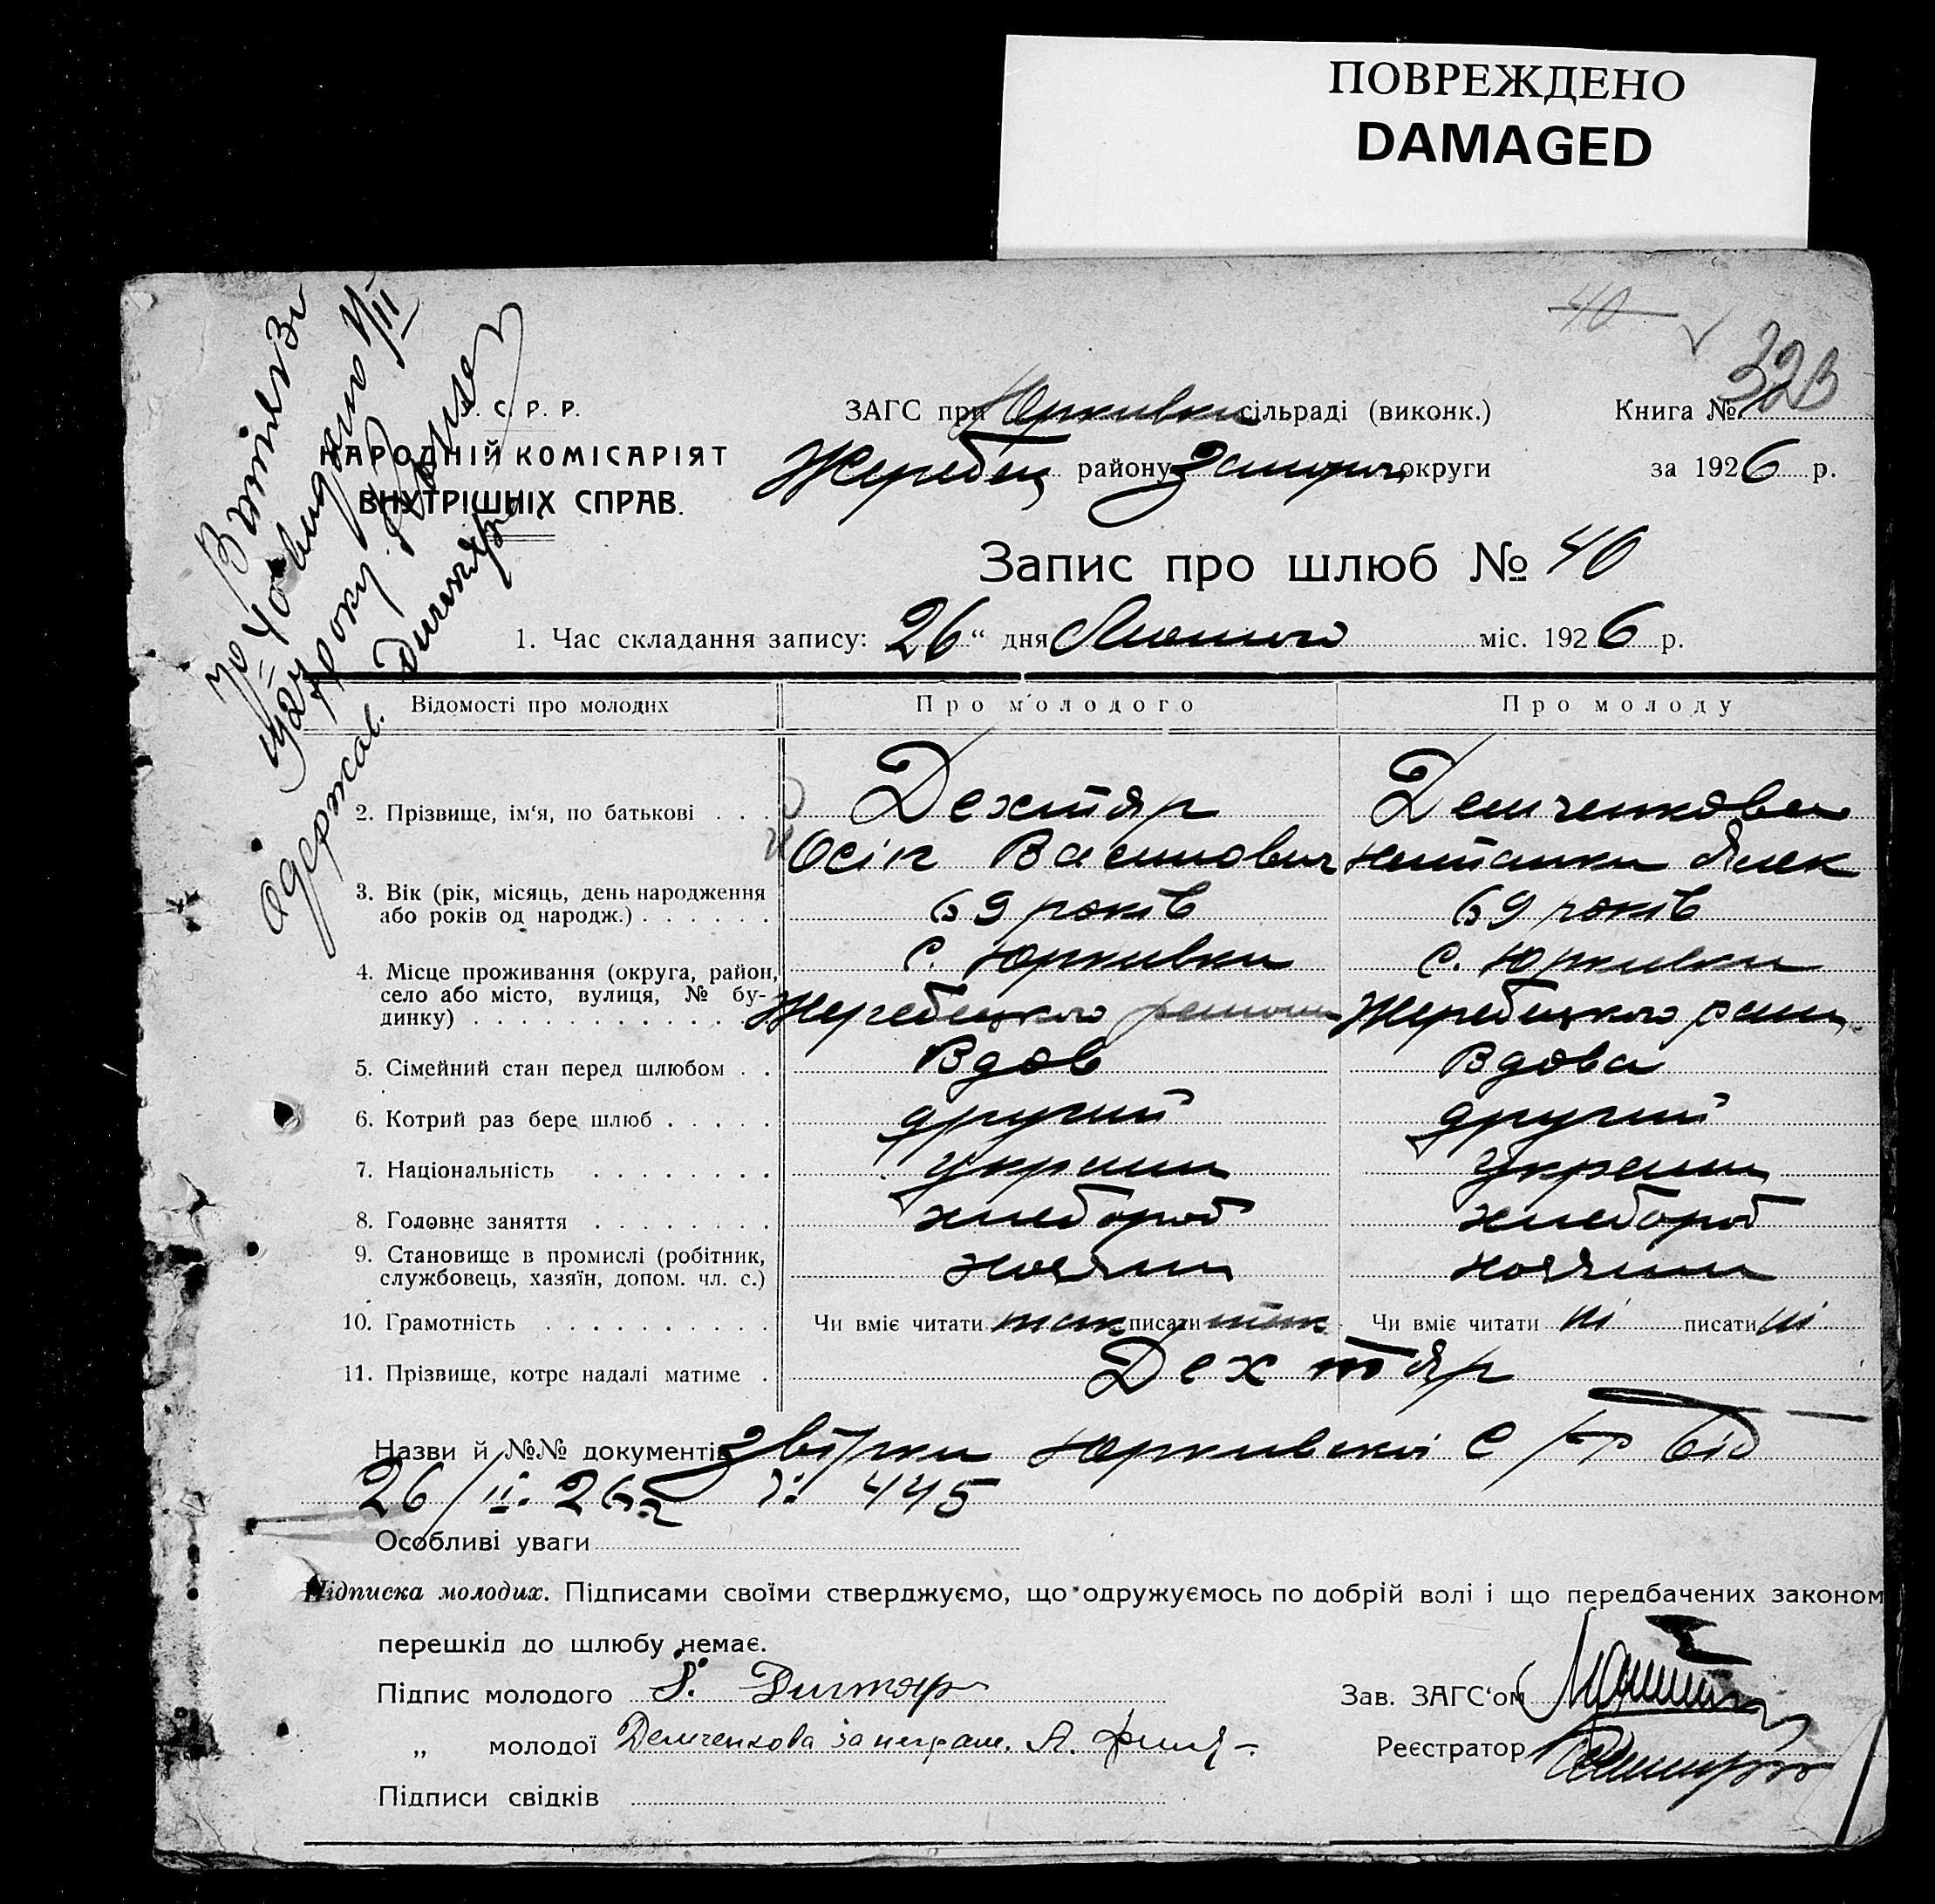 ПОВРЕЖДЕНО
DAMAGED
40
323
С. Р. Р.
НАРОДНІЙ КОМІСАРІЯТ
ВНУТРІШНІХ СПРАВ.
ЗАГС при Юркивки сільраді (виконк.)
Книга №
Жеребец району Запориж округи
за 1926 р.
Запис про шлюб № 40
1. Час складання запису: 26 “ дня Лютого міс. 1926 р.
Відомості про молодих
Про молодого
Про молоду
2. Прізвище, ім‘я, по батькові
Дехтяр
Демченкова
Осіп Василович
3. Вік (рік, місяць, день народження
або років од народж.)
69 років
69 років
4. Місце проживання (округа, район,
село або місто, вулиця, № бу-
динку)
с. Юркивки
с. Юркивки
Жеребецкого району
Жеребецкого район
5. Сімейний стан перед шлюбом
Вдов
Вдова
6. Котрий раз бере шлюб
другий
другий
7. Національність
україн
україн
8. Головне заняття
хлебороб
хлебороб
9. Становище в промислі (робітник,
службовець, хазяїн, допом. чл. с.)
хозяин
хозяин
10. Грамотність
Чи вміє читати так писати так
Чи вміє читати ні писати ні
11. Прізвище, котре надалі матиме
Дехтяр
Назви й №№ документів Юркивской С/Р від
26/II 26 № 445
Особливі уваги
Підписка молодих. Підписами своїми стверджуємо, що одружуємось по добрій волі і що передбачених законом
перешкід до шлюбу немає.
Підпис молодого
Зав. ЗАГС‘ом
„ молодої Демченкова за неграм. А.
Реєстратор
Підписи свідків